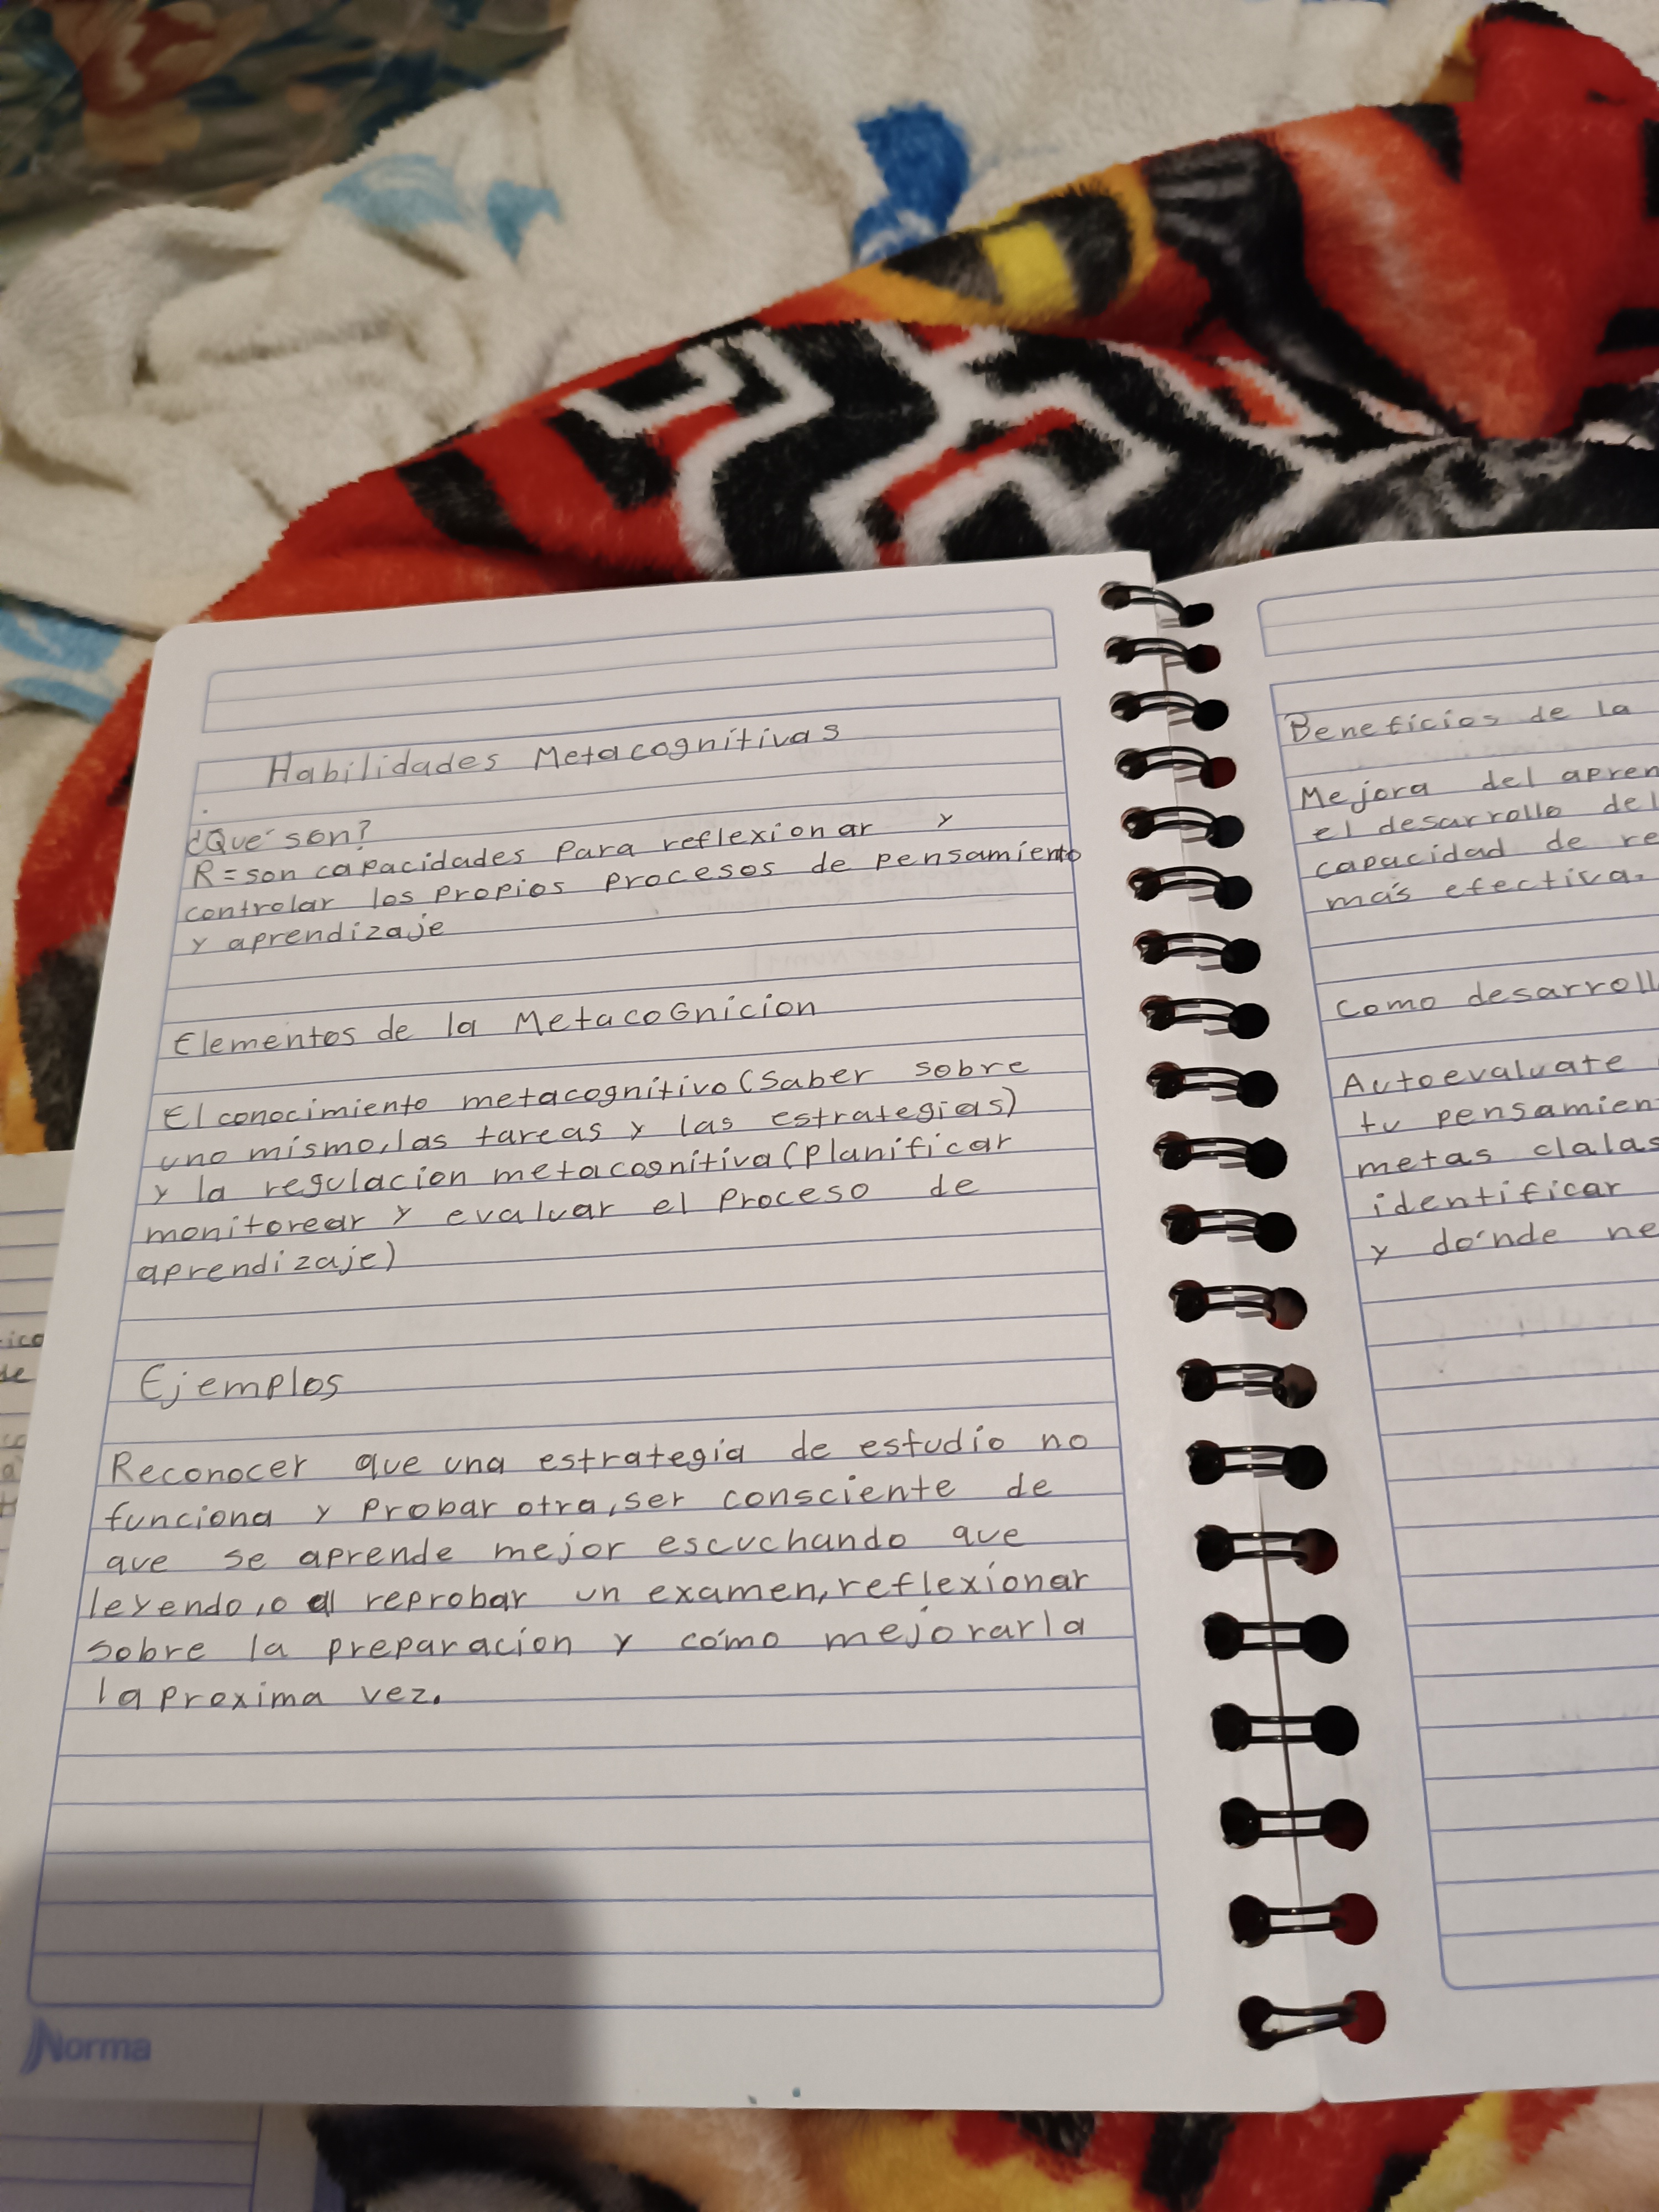 Habilidades Metacognitivas
¿Qué son?
R=son capacidades para reflexionar y
controlar los propios procesos de pensamiento
y aprendizaje
Elementos de la Metacognicion
El conocimiento metacognitivo (Saber sobre
uno mismo, las tareas y las estrategias)
y la regulacion metacognitiva (planificar
monitorear y evaluar el proceso de
aprendizaje)
Ejemplos
Reconocer que una estrategia de estudio no
funciona y probar otra, ser consciente de
que se aprende mejor escuchando que
leyendo, o al reprobar un examen, reflexionar
sobre la preparacion y cómo mejorarla
la proxima vez.
Norma
Beneficios de la
Mejora del apren
el desarrollo del
capacidad de re
más efectiva.
Como desarroll
Autoevaluate
tu pensamien
metas clalas
identificar
y dónde ne